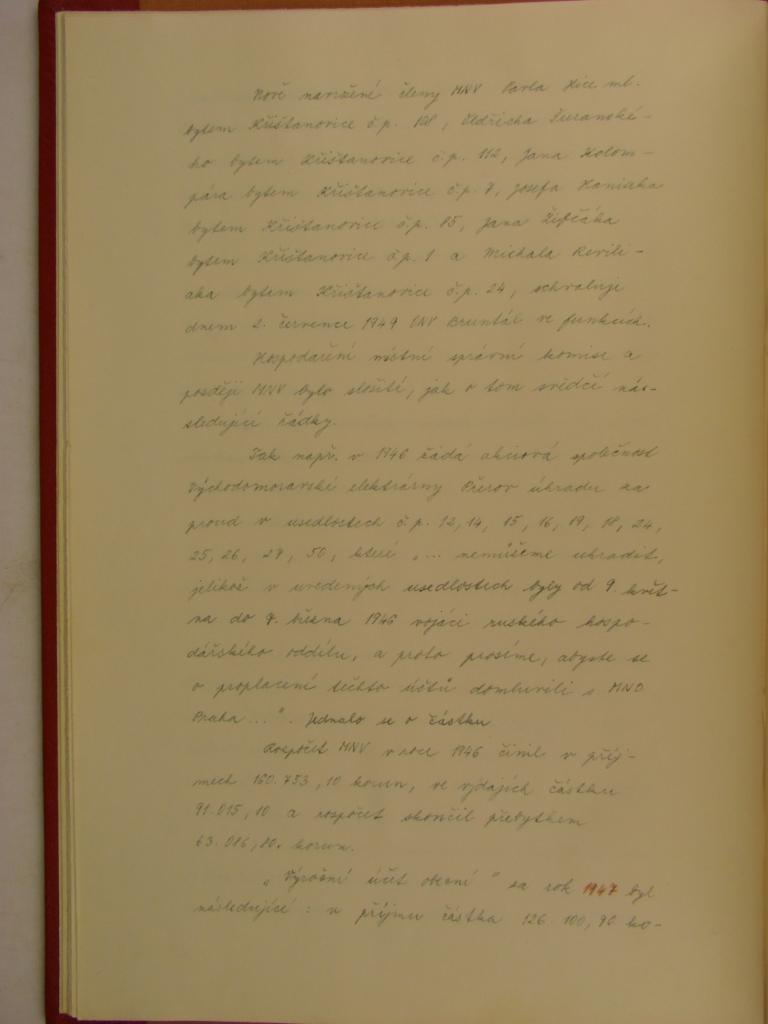 Nově navržení členy MNV Pavla Kice ml.
bytem Křišťanovice č.p. , Oldřicha Turanské-
ho bytem Křišťanovice č.p. 112, Jana Holom-
pára bytem Křišťanovice č.p. 7, Josefa Haniaka
bytem Křišťanovice č.p. 85, Jana
bytem Křišťanovice č.p. 1 a Michala
aka bytem Křišťanovice č.p. 24, schvaluje
dnem 2. července 1949 ONV Bruntál ve funkcích.
Hospodaření místní správní komise a
později MNV bylo složité, jak o tom svědčí nás-
sledující řádky.
Tak např. v 1946 žádá akciová společnost
Východomoravské elektrárny Přerov úhradu za
proud v usedlostech č.p. 12, 14, 15, 16, 18, 24,
25, 26, 50, které „... nemůžeme uhradit,
jelikož v uvedených usedlostech byly od 9. květ-
na do 7. března 1946 vojáci ruského hospo-
dářského oddílu, a proto prosíme, abyste se
o proplacení těchto účtů domluvili s MNO
Praha ...". Jednalo se o částku
Rozpočet MNV v roce 1946 činil v příj-
mech 160.753,10 korun, ve výdajích částku
91.015,10 a rozpočet skončil přebytkem
63.016,80. korun.
„Výroční účet obecní" za rok 1947 byl
následující: v příjmu částka 126.100,90 ko-